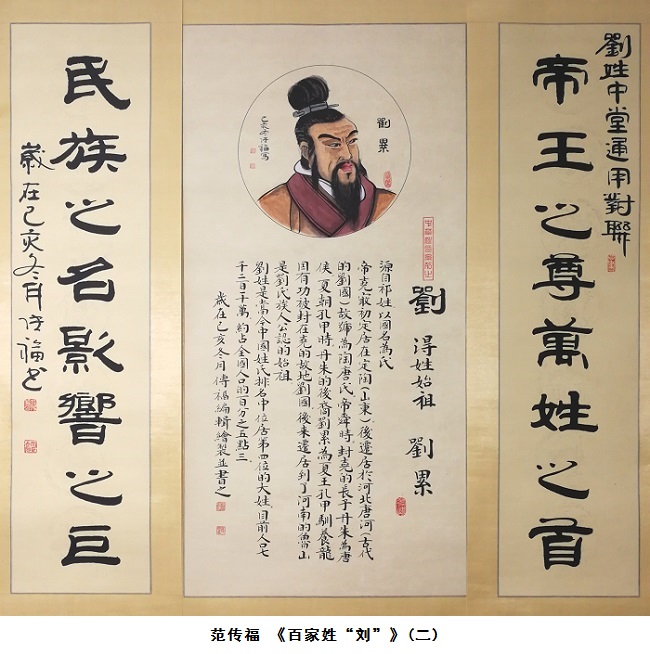 劉姓中堂通用對聯
帝王之尊萬姓之首
劉累
己亥冬傳福寫
劉 得姓始祖 劉累
源自祁姓以國名為氏
帝堯最初定居在定陶(山東)後遷居於河北唐河(古代
的劉國)故號為陶唐氏帝舜時封堯的長子丹朱為唐
侯(夏朝孔甲時丹朱的後裔劉累為夏王孔甲馴養龍
因有功被封在堯的故地劉國後來遷居到了河南的魯山
是劉氏族人公認的始祖
劉姓是當今中國姓氏排名中位居第四位的大姓目前人口七
千二百千萬約占全國人口的百分之五點三
歲在己亥冬月傳福編輯繪製並書之
民族之名影響之巨
歲在己亥冬月傳福書
范传福 《百家姓“刘”》(二)